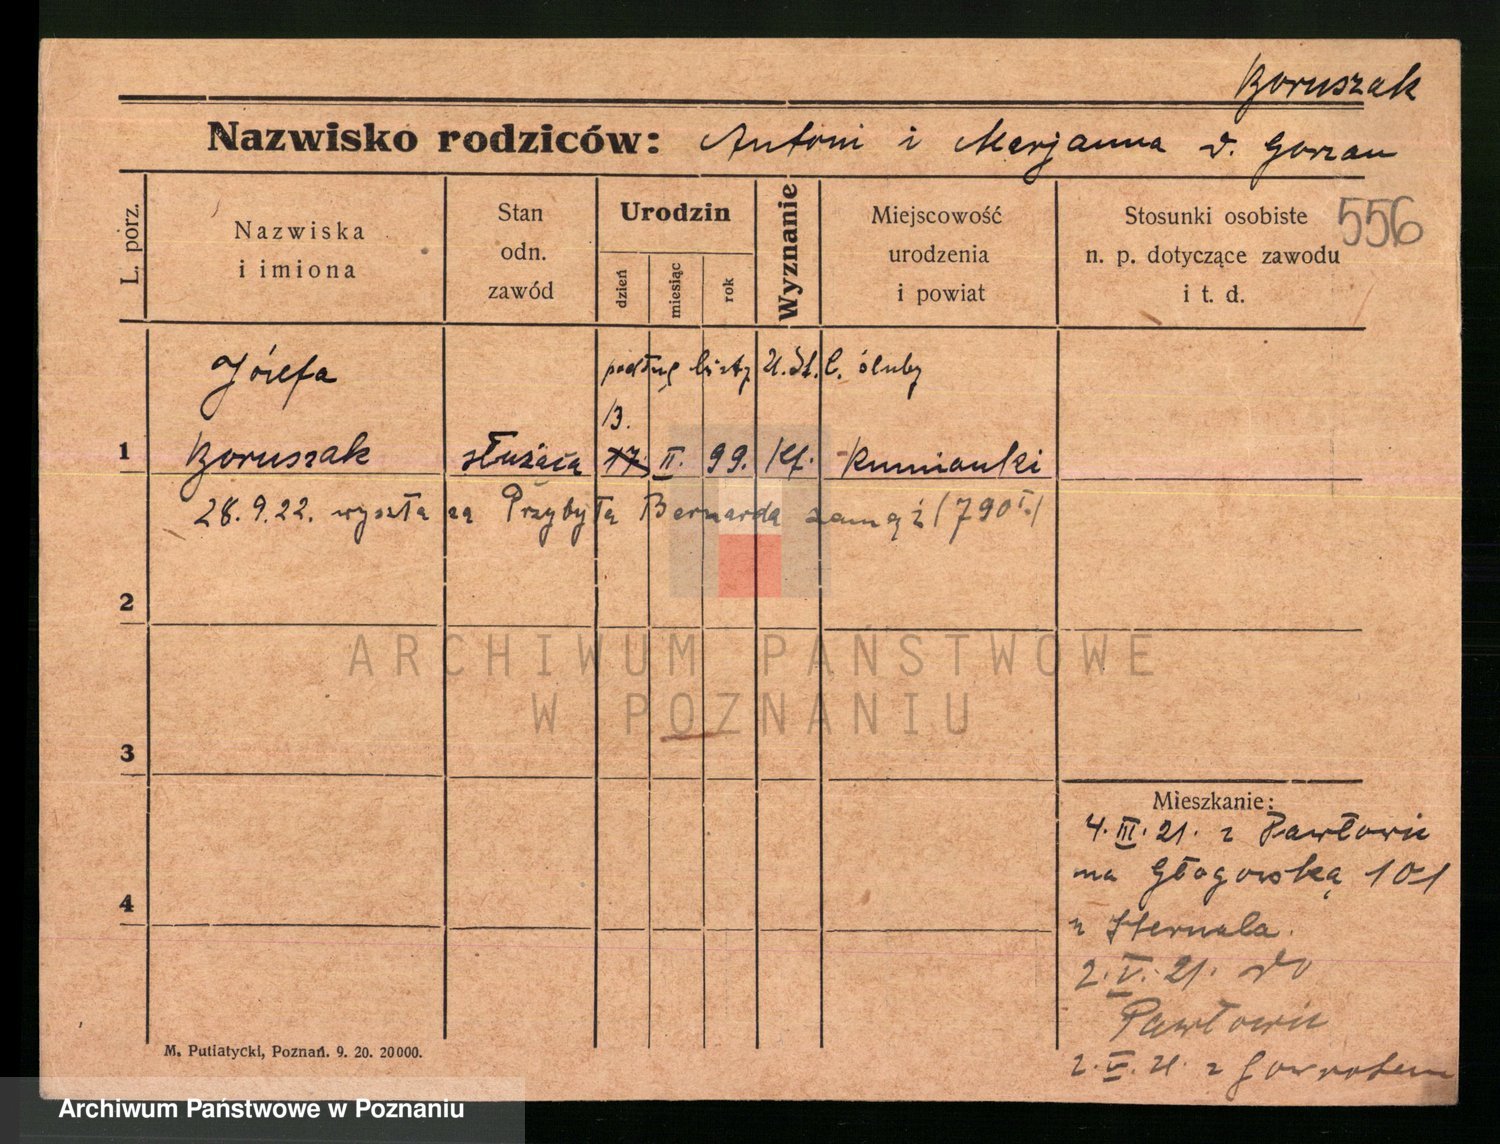 Boruszak
Nazwisko rodziców: Antoni i Marjanna d. Gorzan
L. porz.
Nazwiska
i imiona
Stan
odn.
zawód
Urodzin
dzień
miesiąc
rok
Wyznanie
Miejscowość
urodzenia
i powiat
Stosunki osobiste
n. p. dotyczące zawodu
i t. d.
556
Józefa
podług listy U. St. C. śluby
13.
1 Boruszak służąca 17. II. 99. Kf. Rumianki
28. 9. 22. wyszła za Przybyła Bernarda zamąż (790 I.)
2
ARCHIWUM PAŃSTWOWE
W POZNANIU
3
4
Mieszkanie:
4. III. 21. z Pawłowic
na Głogowską 101
Sternala.
2. V. 21. do
Pawłowic
2. V. 21. z
M. Putiatycki, Poznań. 9. 20. 20000.
Archiwum Państwowe w Poznaniu